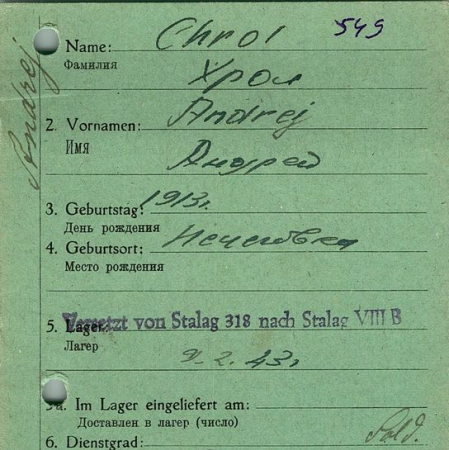 549
Andrej
Name: Chrol
Фамилия
Хрол
2. Vornamen: Andrej
Имя
Андрей
3. Geburtstag: 1913г.
День рождения
4. Geburtsort:
Место рождения
5. Lager: Versetzt von Stalag 318 nach Stalag VIII B
Лагер
9.2.43г
5a. Im Lager eingeliefert am:
Доставлен в лагер (число)
6. Dienstgrad: Sold.